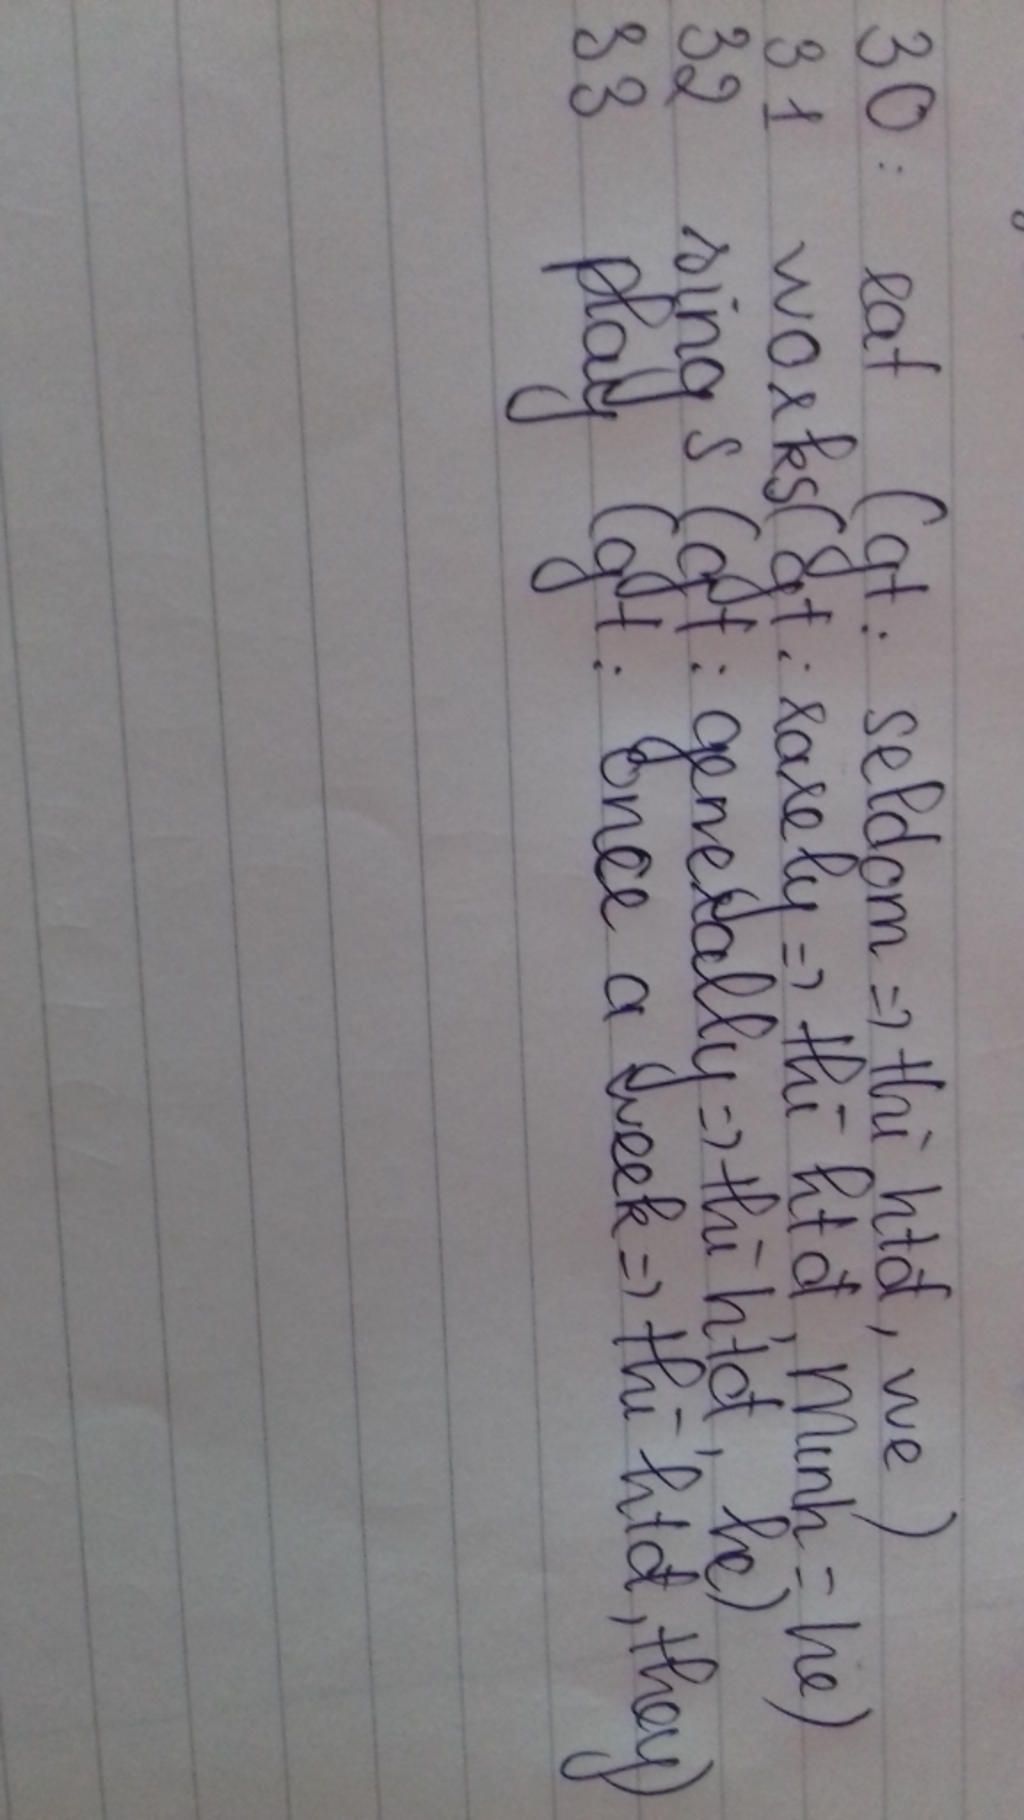 30: eat (gt: seldom => thì htđ, we)
31 works (gt: rarely => thì htđ, Minh = he)
32 sings (gt: generally => thì htđ, he)
33 play (gt: once a week => thì htđ, they)